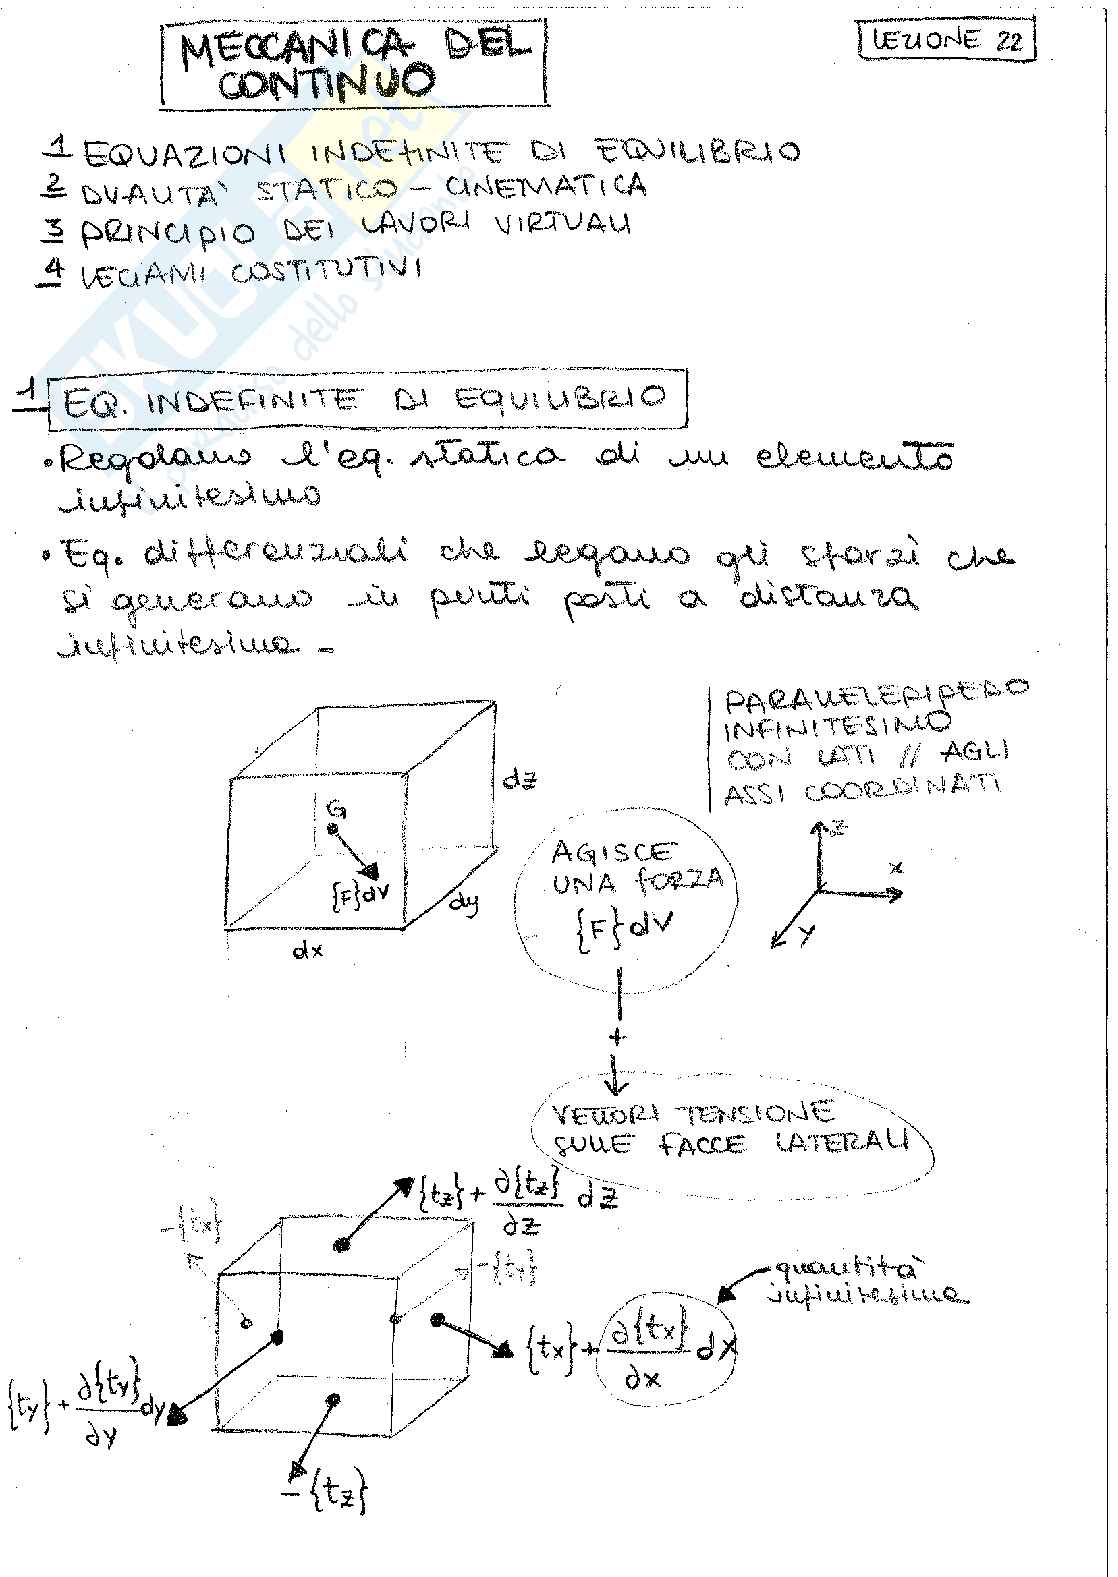 MECCANICA DEL
CONTINUO
LEZIONE 22
1 EQUAZIONI INDEFINITE DI EQUILIBRIO
2 DUALITÀ STATICO - CINEMATICA
3 PRINCIPIO DEI LAVORI VIRTUALI
4 LEGAMI COSTITUTIVI
1 EQ. INDEFINITE DI EQUILIBRIO
• Regolano l'eq. statica di un elemento
infinitesimo
• Eq. differenziali che legano gli sforzi che
si generano in punti posti a distanza
infinitesima -
PARALLELEPIPEDO
INFINITESIMO
CON LATI // AGLI
ASSI COORDINATI
dz
G
{F}dV
dy
dx
AGISCE
UNA FORZA
{F}dV
z
x
y
+
VETTORI TENSIONE
SULLE FACCE LATERALI
{tz} + ∂{tz}/∂z dz
-{tx}
-{ty}
quantità
infinitesima
{tx} + ∂{tx}/∂x dx
{ty} + ∂{ty}/∂y dy
-{tz}